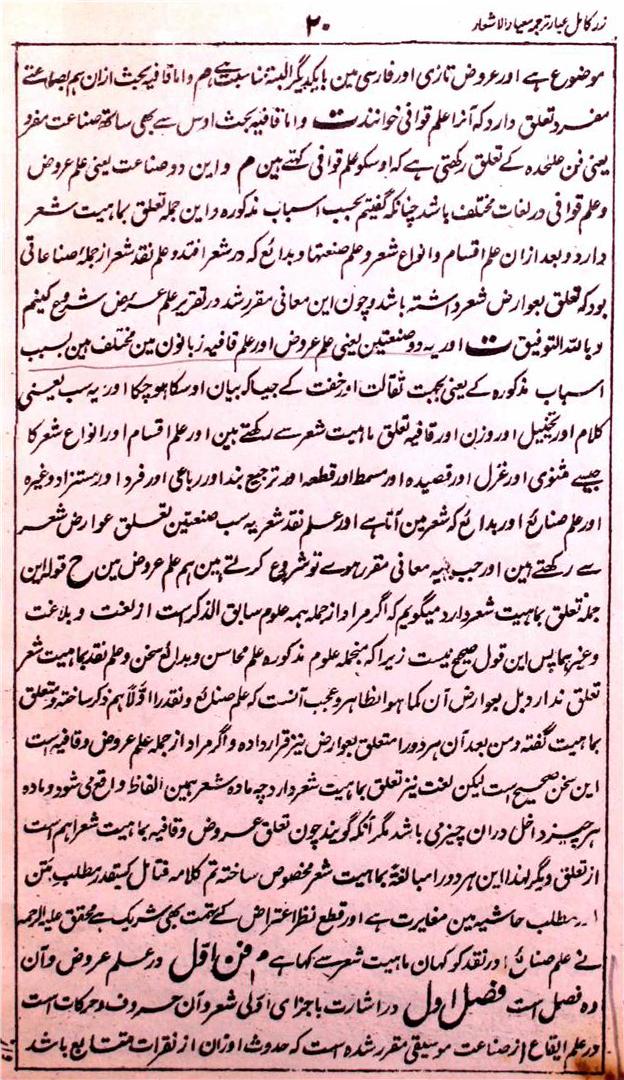 زر کامل عیار ترجمہ معیار الاشعار
۲۰
موضوع ہے اور عروض تازی اور فارسی مین بایکدیگر البتہ مناسبت ہے م و اما قافیہ بحث ازان ہم بصناعتے
مفرد تعلق دارد کہ آنرا علم قوافی خوانند ت و اما قافیہ بحث اوس سے بھی ساتھ صناعت مفرد
یعنی فن علٰحدہ کے تعلق رکھتی ہے کہ اوسکو علم قوافی کہتے ہین م و این دو صناعت یعنی علم عروض
و علم قوافی در لغات مختلف باشد چنانکہ گفتیم بحسب اسباب مذکورہ و این جملہ تعلق بماہیت شعر
دارد و بعد ازان علم اقسام و انواع شعر و علم صنعتہا و بدائع کہ در شعر افتد و علم نقد شعر از جملۂ صناعاتی
بود کہ تعلق بعوارض شعر داشتہ باشد و چون این معانی مقرر شد در تقریر علم عروض شروع کنیم
و باللہ التوفیق ت اور یہ دو صنعتین یعنی علم عروض اور علم قافیہ زبانون مین مختلف ہین بسبب
اسباب مذکورہ کے یعنی بجہت ثقالت اور خفت کے جیسا کہ بیان اوسکا ہو چکا اور یہ سب یعنی
کلام اور تخییل اور وزن اور قافیہ تعلق ماہیت شعر سے رکھتے ہین اور علم اقسام اور انواع شعر کا
جیسے مثنوی اور غزل اور قصیدہ اور مسمط اور قطعہ اور ترجیع بند اور رباعی اور فرد اور مستزاد وغیرہ
اور علم صنائع اور بدائع کہ شعر مین آتا ہے اور علم نقد شعر یہ سب صنعتین تعلق عوارض شعر
سے رکھتے ہین اور جب یہہ معانی مقرر ہوے تو شروع کرتے ہین ہم علم عروض مین ح قولہ این
جملہ تعلق بماہیت شعر دارد میگویم کہ اگر مراد از جملہ ہمہ علوم سابق الذکرست از لغت و بلاغت
و غیرہما پس این قول صحیح نیست زیرا کہ منجملہ علوم مذکورہ علم محاسن و بدائع سخن و علم نقد بماہیت شعر
تعلق ندارد بل بعوارض آن کما ہو الظاہر و عجب آنست کہ علم صنائع و نقد را اولاً ہم ذکر ساختہ و متعلق
بماہیت گفتہ و من بعد آن ہر دو را متعلق بعوارض نیز قرار دادہ و اگر مراد از جملہ علم عروض و قافیہ است
این سخن صحیح است لیکن لغت نیز تعلق بماہیت شعر دارد چہ مادہ شعر ہمین الفاظ واقع می شود و مادہ
ہر چیز داخل دران چیز می باشد مگر آنکہ گویند چون تعلق عروض و قافیہ بماہیت شعر اہم است
از تعلق دیگر لہذا این ہر دو را مبالغۃً بماہیت شعر مخصوص ساختہ تم کلامہ فتامل کیسقدر مطلب متن
اور مطلب حاشیہ مین مغایرت ہے اور قطع نظر اعتراض کے تہمت بھی شریک ہے محقق علیہ الرحمہ
نے علم صنائع اور نقد کو کہان ماہیت شعر سے کہا ہے م فن اول در علم عروض و آن
دہ فصل است فصل اول در اشارت باجزای اوّلی شعر و آن حروف و حرکات است
در علم ایقاع از صناعت موسیقی مقرر شدہ است کہ حدوث اوزان از نقرات متتابع باشد